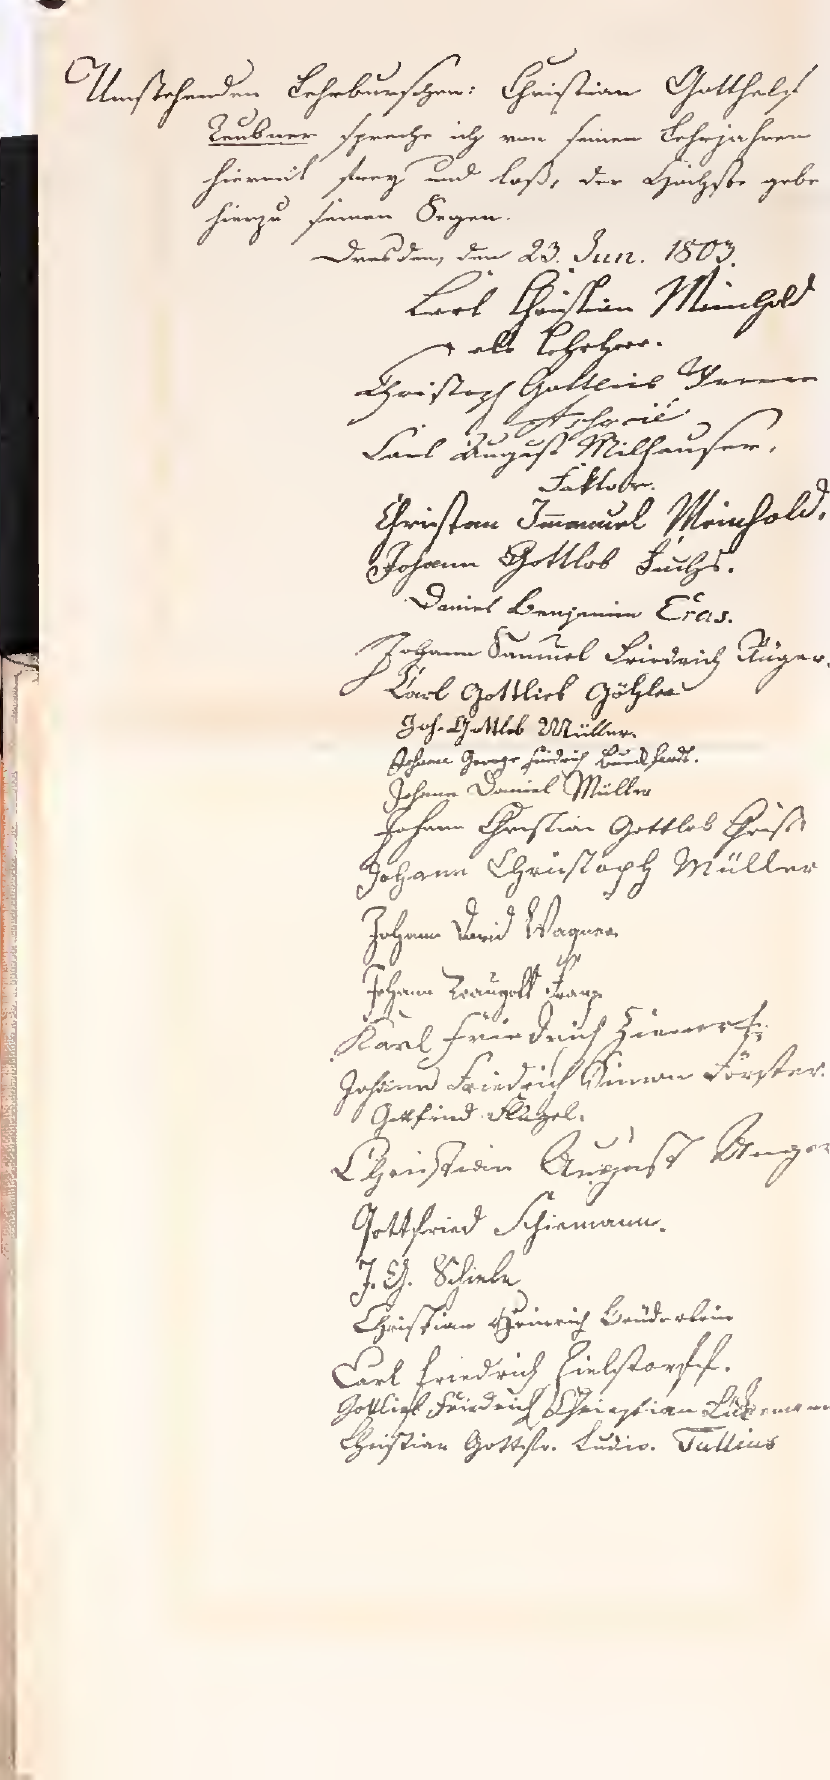 Umstehenden Lehrburschen: Christian Gotthelf
Teubner spreche ich von seinen Lehrjahren
hiermit frey und loß, der Höchste gebe
hierzu seinen Segen.
Dresden, den 23. Jun. 1803.
Carl Christian Meinhold
als Lehrherr.
Christoph Gottlieb
Carl August Milhauser,
Faktor.
Christian Immanuel Meinhold.
Johann Gottlob Fuchs.
Daniel Benjamin Eras.
Johann Samuel Friedrich Rüger.
Carl Gottlieb Göhler
Joh. Gottlob Müller.
Johann George Friedrich
Johann Daniel Müller
Johann Christian Gottlob
Johann Christoph Müller
Johann David Wagner
Johann Traugott Franz
Karl Friedrich
Johann Friedrich Simon Förster.
Gottfried Flügel.
Christian August Unger
Gottfried Schiemann.
J. G. Schiele
Christian Heinrich Brüderlein
Carl Friedrich Zielstorff.
Gottlieb Friedrich Christian
Christian Gottfr. Ludw. Tullius